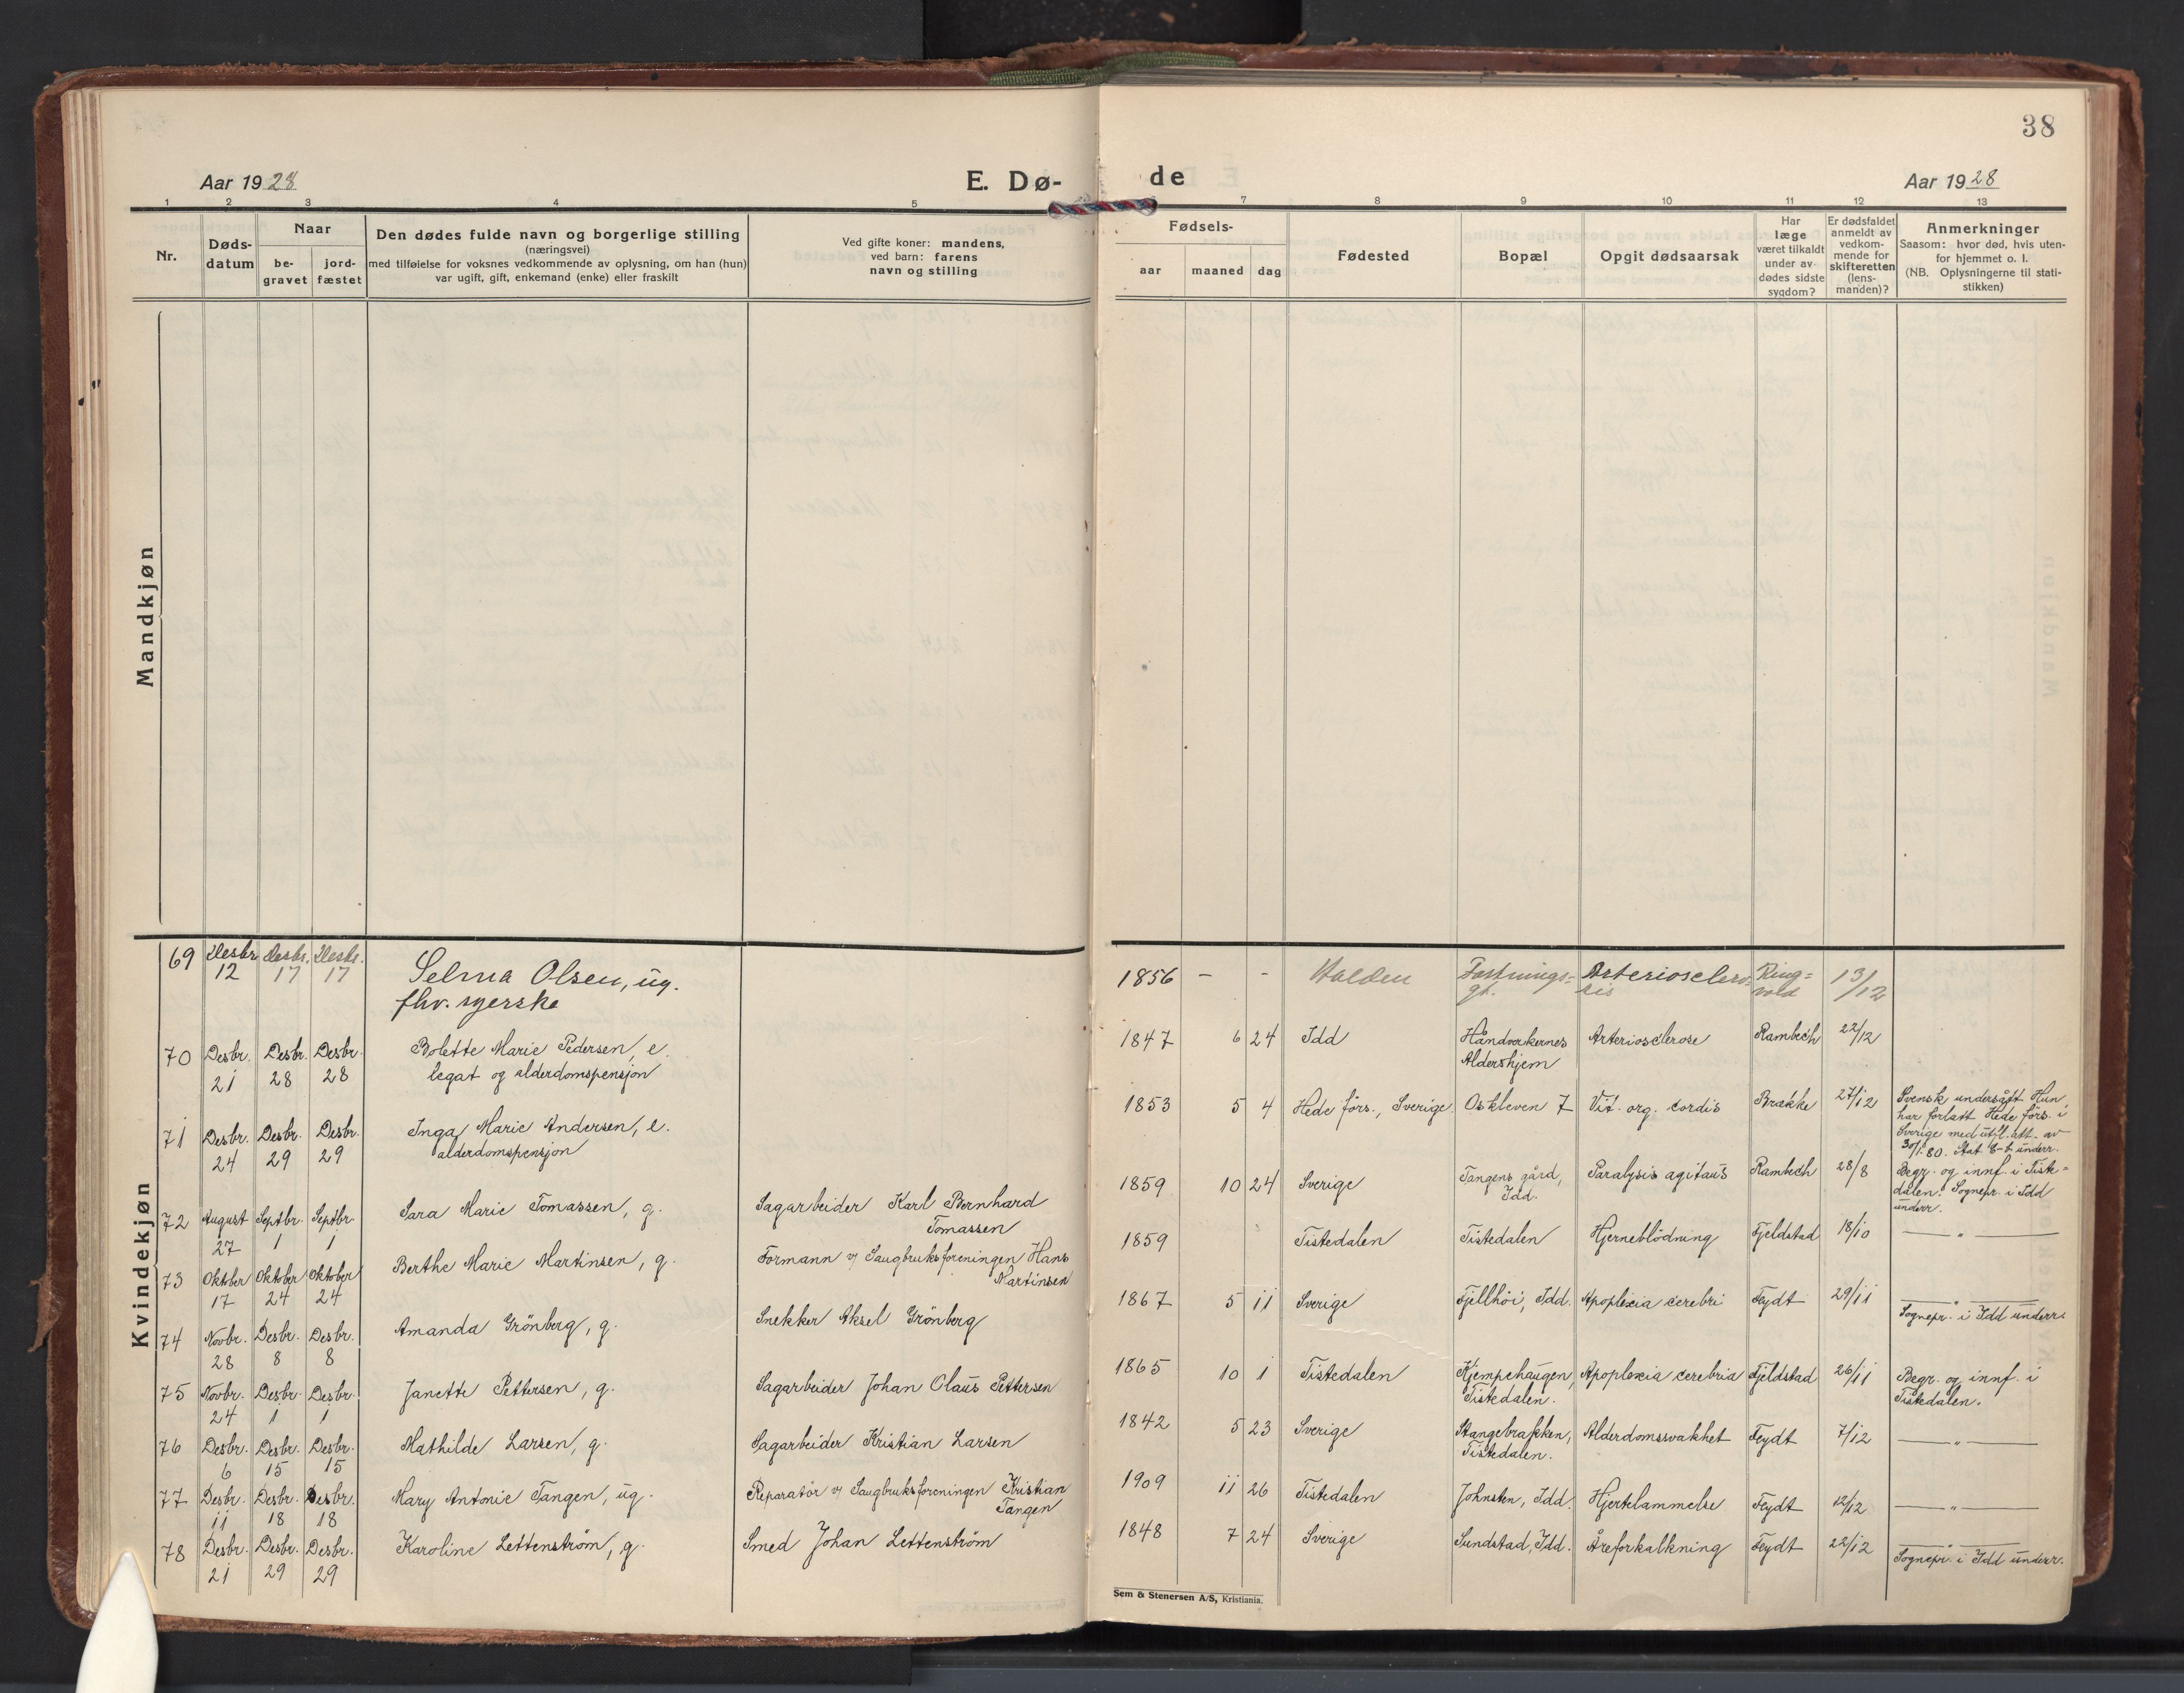 38
Aar 1928
E. Dø-
de
Aar 1928
1 2 3 4 5 7 8 9 10 11 12 13
Nr.
Døds-
datum
Naar
be-
gravet
jord-
fæstet
Den dødes fulde navn og borgerlige stilling
(næringsvei)
med tilføielse for voksnes vedkommende av oplysning, om han (hun)
var ugift, gift, enkemand (enke) eller fraskilt
Ved gifte koner: mandens,
ved barn: farens
navn og stilling
Fødsels-
aar maaned dag
Fødested
Bopæl
Opgit dødsaarsak
Har
læge
været tilkaldt
under av-
dødes sidste
sygdom?
Er dødsfaldet
anmeldt av
vedkom-
mende for
skifteretten
(lens-
manden)?
Anmerkninger
Saasom: hvor død, hvis uten-
for hjemmet o. l.
(NB. Oplysningerne til stati-
stikken)
Mandkjøn
Kvindekjøn
69 Desbr. Desbr. Desbr. Selma Olsen, ug. 1856 - - Halden Fæstnings= Arteriosclero= Ring= 13/12
12 17 17 fhv. syerske gt. sis vold
70 Desbr. Desbr. Desbr. Bolette Marie Pedersen, e. 1847 6 24 Idd Håndverkernes Arteriosclerose Rambech 22/12
21 28 28 legat og alderdomspensjon Aldershjem
71 Desbr. Desbr. Desbr. Inga Marie Andersen, e. 1853 5 4 Hede förs., Sverige. Oskleven 7 Vit. org. cordis Brække 27/12 Svensk undersått. Hun
24 29 29 alderdomspensjon har forlatt Hede förs. i
Sverige med utfl. att. av
30/1. 80. Stat underr.
72 August Septbr. Septbr. Sara Marie Tomassen, g. Sagarbeider Karl Bernhard 1859 10 24 Sverige Tangens gård, Paralysis agitans Rambech 28/8 Begr. og innf. i Tiste=
27 1 1 Tomassen Idd. dalen. Sognepr. i Idd
underr.
73 Oktober Oktober Oktober Berthe Marie Martinsen, g. Formann v/ Saugbruksforeningen Hans 1859 Tistedalen Tistedalen Hjerneblödning Fjeldstad 18/10 — " —
17 24 24 Martinsen
74 Novbr. Desbr. Desbr. Amanda Grönberg, g. Snekker Aksel Grönberg 1867 5 11 Sverige Fjellhöi, Idd. Apoplexia cerebri Feydt 29/11 — " —
28 8 8 Sognepr. i Idd underr.
75 Novbr. Desbr. Desbr. Janette Pettersen, g. Sagarbeider Johan Olaus Pettersen 1865 10 1 Tistedalen Kjempehaugen, Apoplexia cerebria Fjeldstad 26/11 Begr. og innf. i
24 1 1 Tistedalen. Tistedalen.
76 Desbr. Desbr. Desbr. Mathilde Larsen, g. Sagarbeider Kristian Larsen 1842 5 23 Sverige Stangebrakken, Alderdomssvakhet Feydt 7/12 — " —
6 15 15 Tistedalen.
77 Desbr. Desbr. Desbr. Mary Antonie Tangen, ug. Reparatör v/ Saugbruksforeningen Kristian 1909 11 26 Tistedalen Johnsten, Idd. Hjertelammelse Feydt 12/12 — " —
11 18 18 Tangen
78 Desbr. Desbr. Desbr. Karoline Lettenström, g. Smed Johan Lettenström 1848 7 24 Sverige Sundstad, Idd. Åreforkalkning Feydt 22/12 — " —
21 29 29 Sognepr. i Idd underr.
Sem & Stenersen A/S, Kristiania.